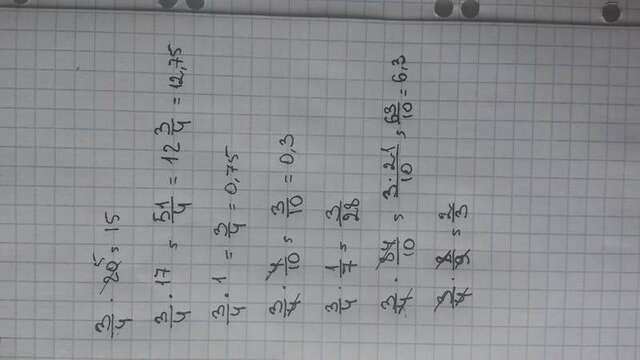 3/4 · 20 5 = 15
3/4 · 17 = 51/4 = 12 3/4 = 12,75
3/4 · 1 = 3/4 = 0,75
3/4 · 4/10 = 3/10 = 0,3
3/4 · 1/7 = 3/28
3/4 · 84/10 = 3·21/10 = 63/10 = 6,3
3/4 · 8/9 = 2/3